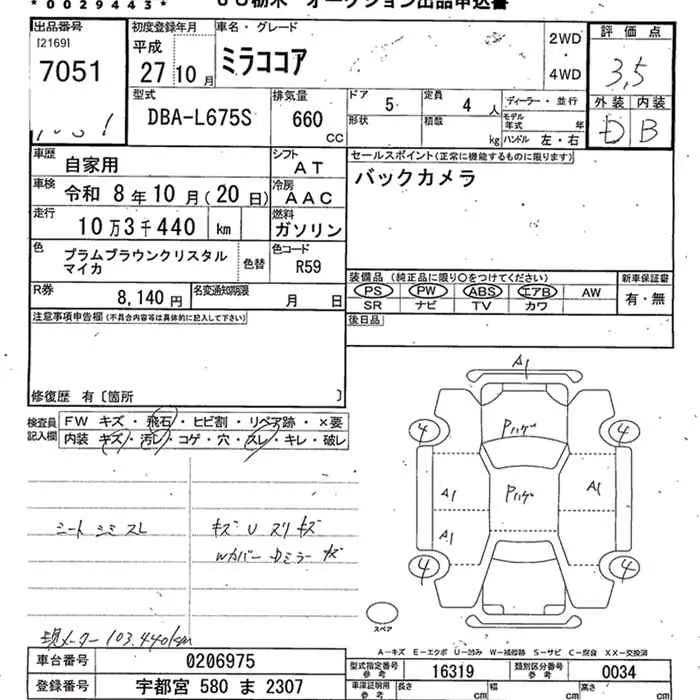 *0029443*
オークション出品申込書
出品番号
[2169]
7051
初度登録年月
平成
27 10 月
車名・グレード
ミラココア
2WD
・
4WD
評価点
3,5
外装 内装
D B
型式
DBA-L675S
排気量
660
CC
ドア 5
定員 4 人
形状
積載 kg
ディーラー・並行
モデル年式 年
ハンドル 左・右
車歴
自家用
シフト
AT
車検
令和 8年 10月(20日)
冷房
AAC
走行
10万3千440 km
燃料
ガソリン
色
プラムブラウンクリスタル
マイカ
色替
色コード
R59
R券
8,140 円
名変通知期限
月 日
セールスポイント(正常に機能するものに限ります)
バックカメラ
装備品 (純正品に限り○をつけてください)
新車保証書
PS PW ABS エアB AW
有・無
SR ナビ TV カワ
後日品
注意事項申告欄(不具合内容等は具体的に記入して下さい)
修復歴 有〔箇所 〕
検査員
記入欄
FW キズ・飛石・ヒビ割・リペア跡・×要
内装 キズ・汚レ・コゲ・穴・スレ・キレ・破レ
シート シミ スレ
キズ U スリキズ
Wカバー Dミラー キズ
現メーター 103,440km
A1
4 4
Pハゲ
A1 Pハゲ A1
A1
4 4
スペア
A-キズ E-エクボ U-凹み W-補修跡 S-サビ C-腐食 XX-交換済
車台番号
0206975
型式指定番号
参考
16319
類別区分番号
参考
0034
登録番号
宇都宮 580 ま 2307
車庫証明用
参考
長さ cm
幅 cm
高さ cm